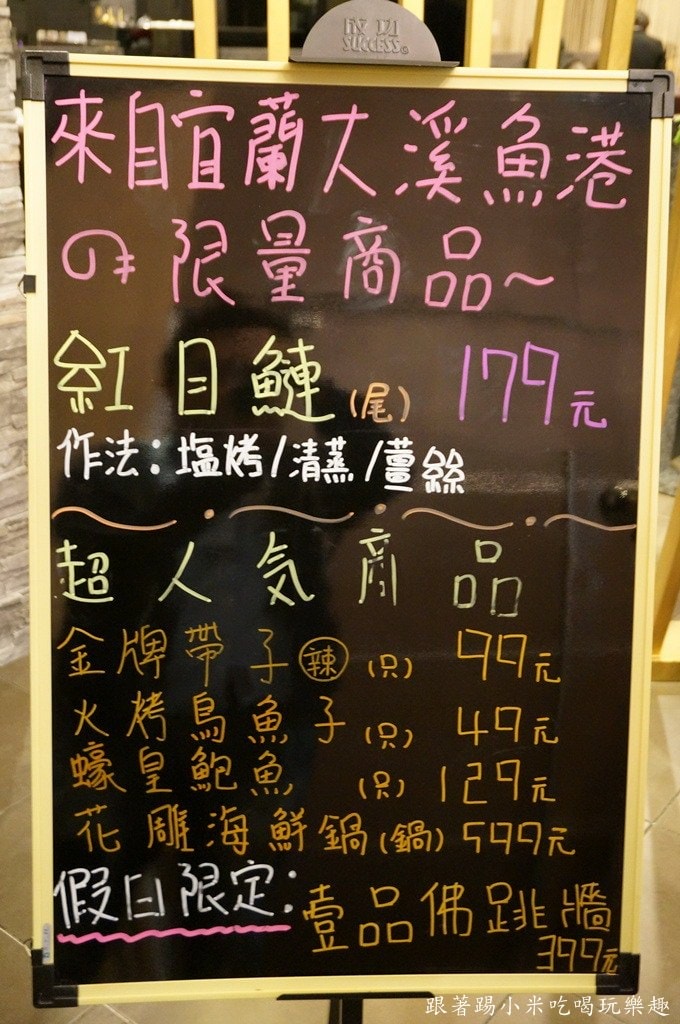 FN 171
SUCCESS
來自宜蘭大溪魚港
の限量商品~
紅目鰱(尾) 179元
作法:塩烤/清蒸/薑絲
超人気商品
金牌帶子辣(只) 99元
火烤鳥魚子(只) 49元
蠔皇鮑魚 (只) 129元
花雕海鮮鍋(鍋) 599元
假日限定:壹品佛跳牆
399元
跟著踢小米吃喝玩樂趣